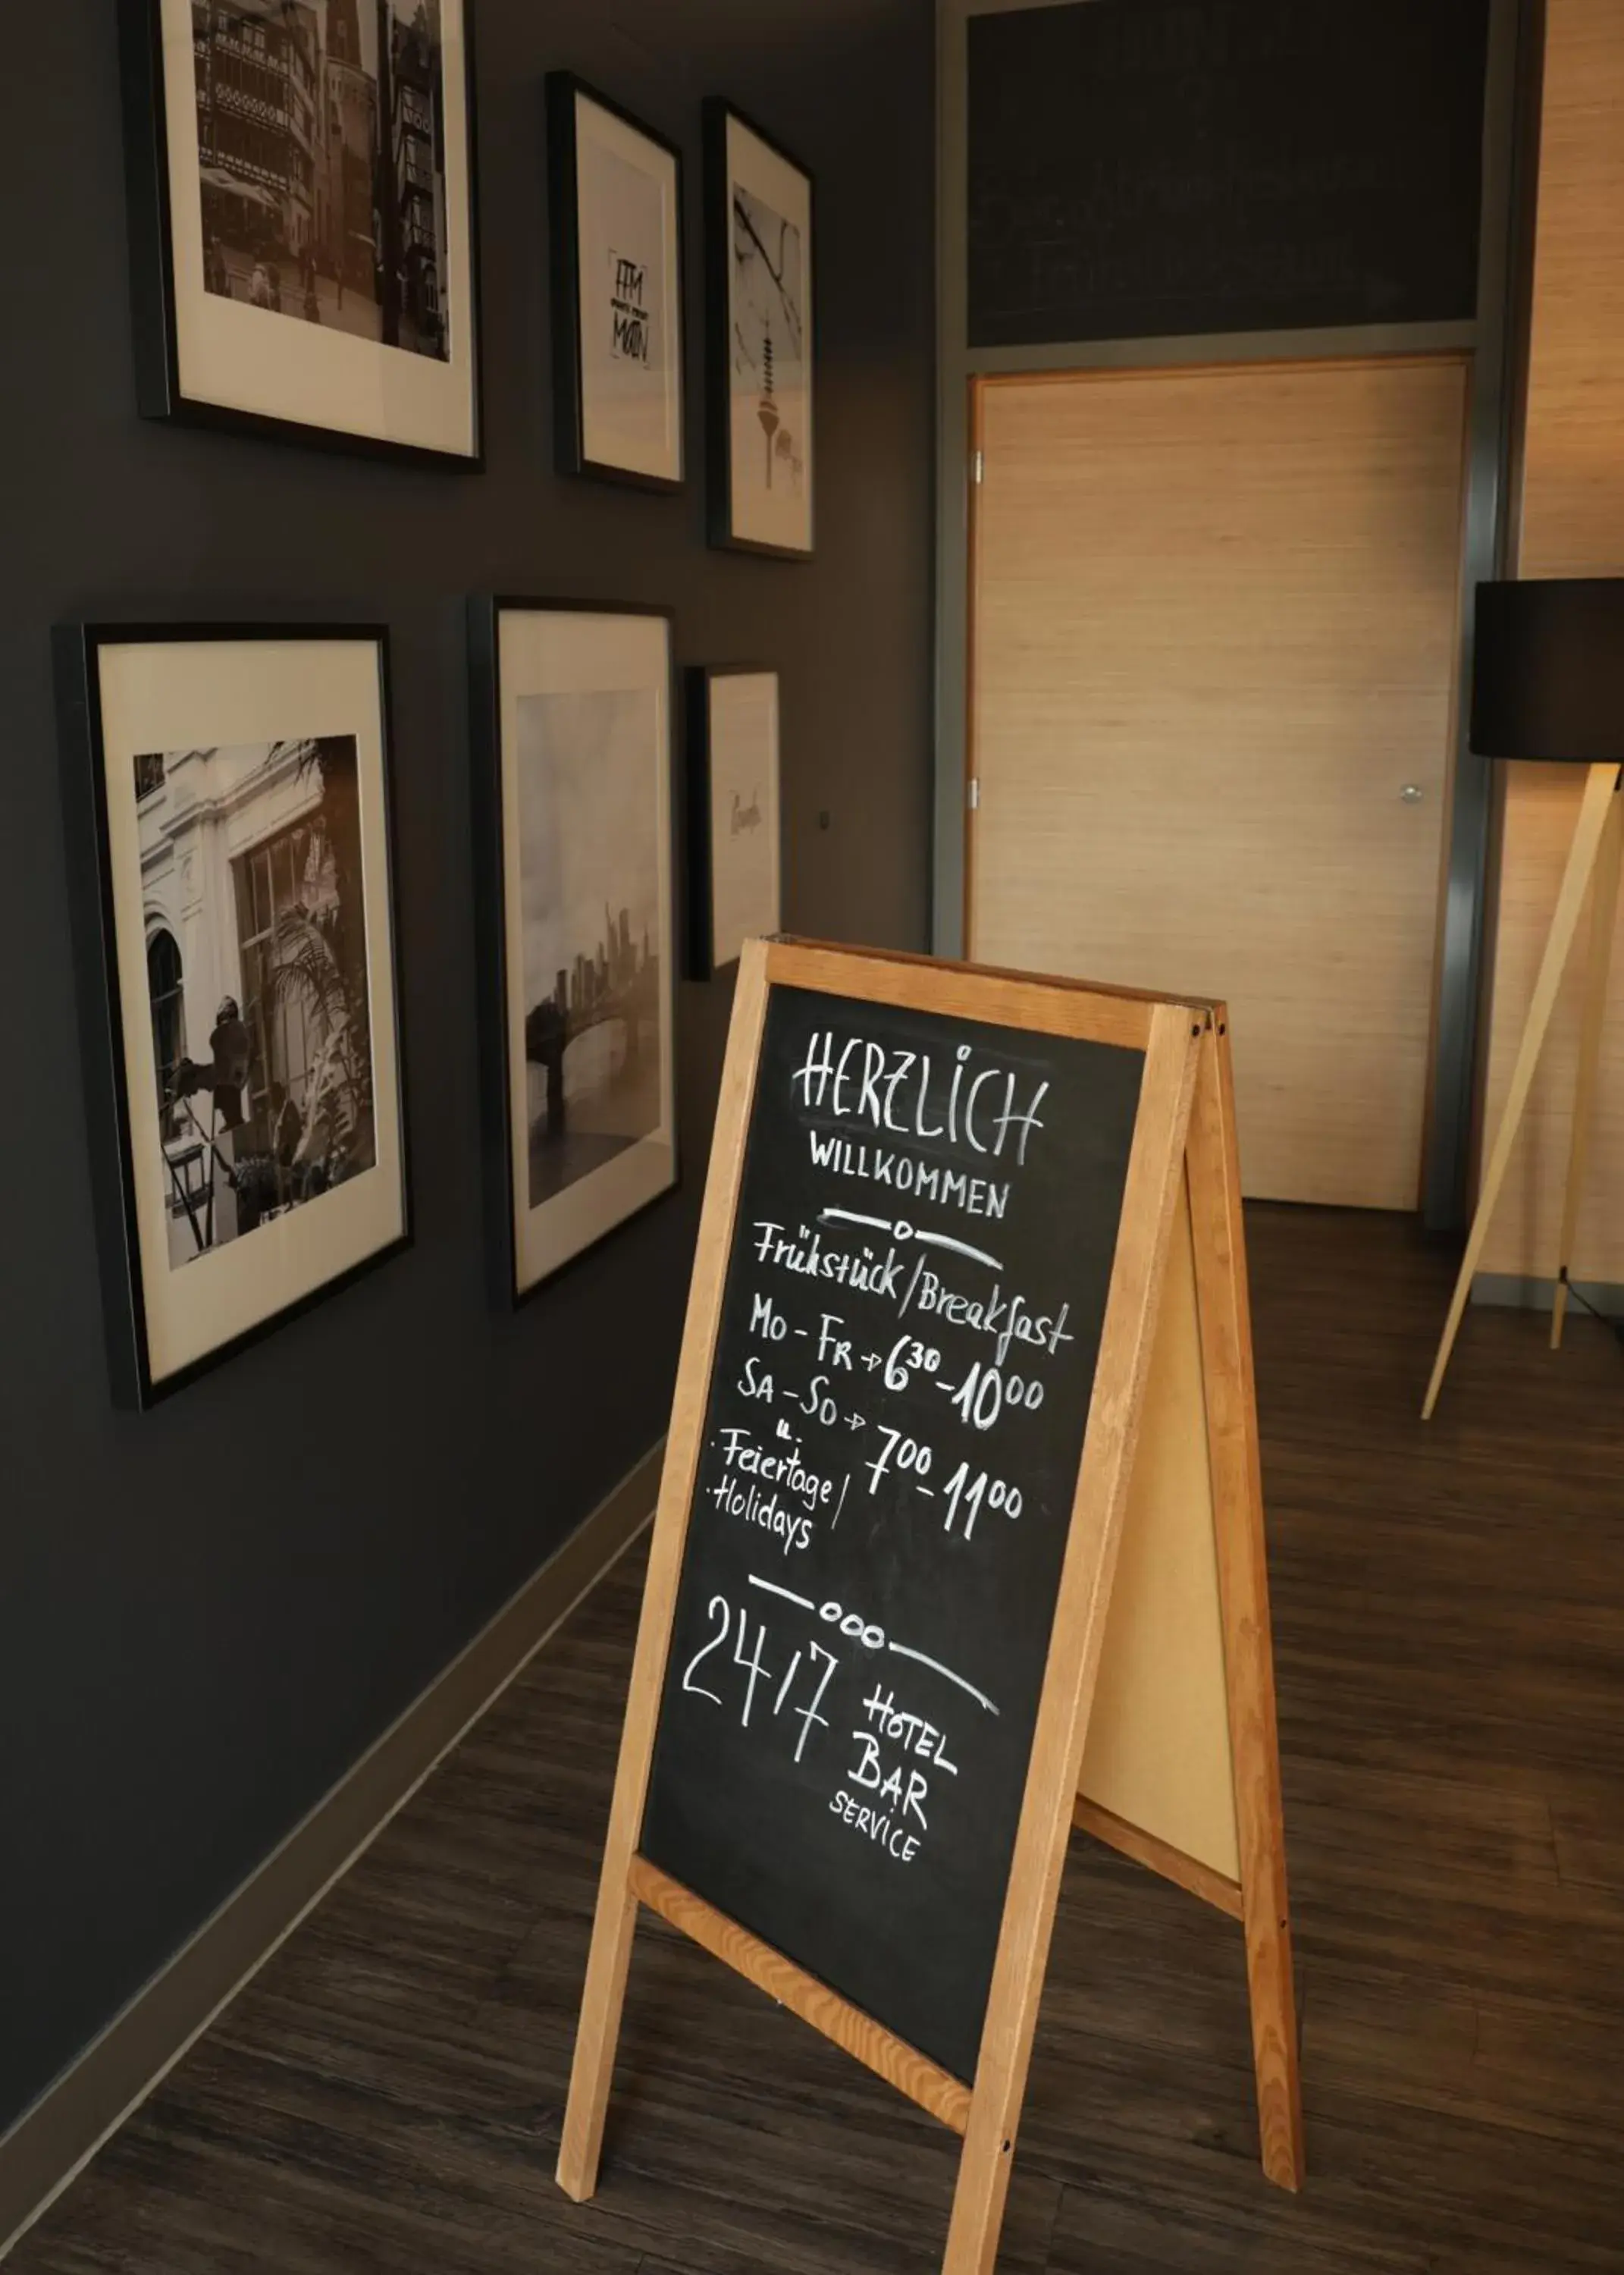 FFM
MAIN
HERZLICH
WILLKOMMEN
Frühstück/Breakfast
Mo - FR → 6³⁰ - 10⁰⁰
SA - SO → 7⁰⁰ - 11⁰⁰
u.
· Feiertage /
· Holidays
24/7
HOTEL
BAR
SERVICE